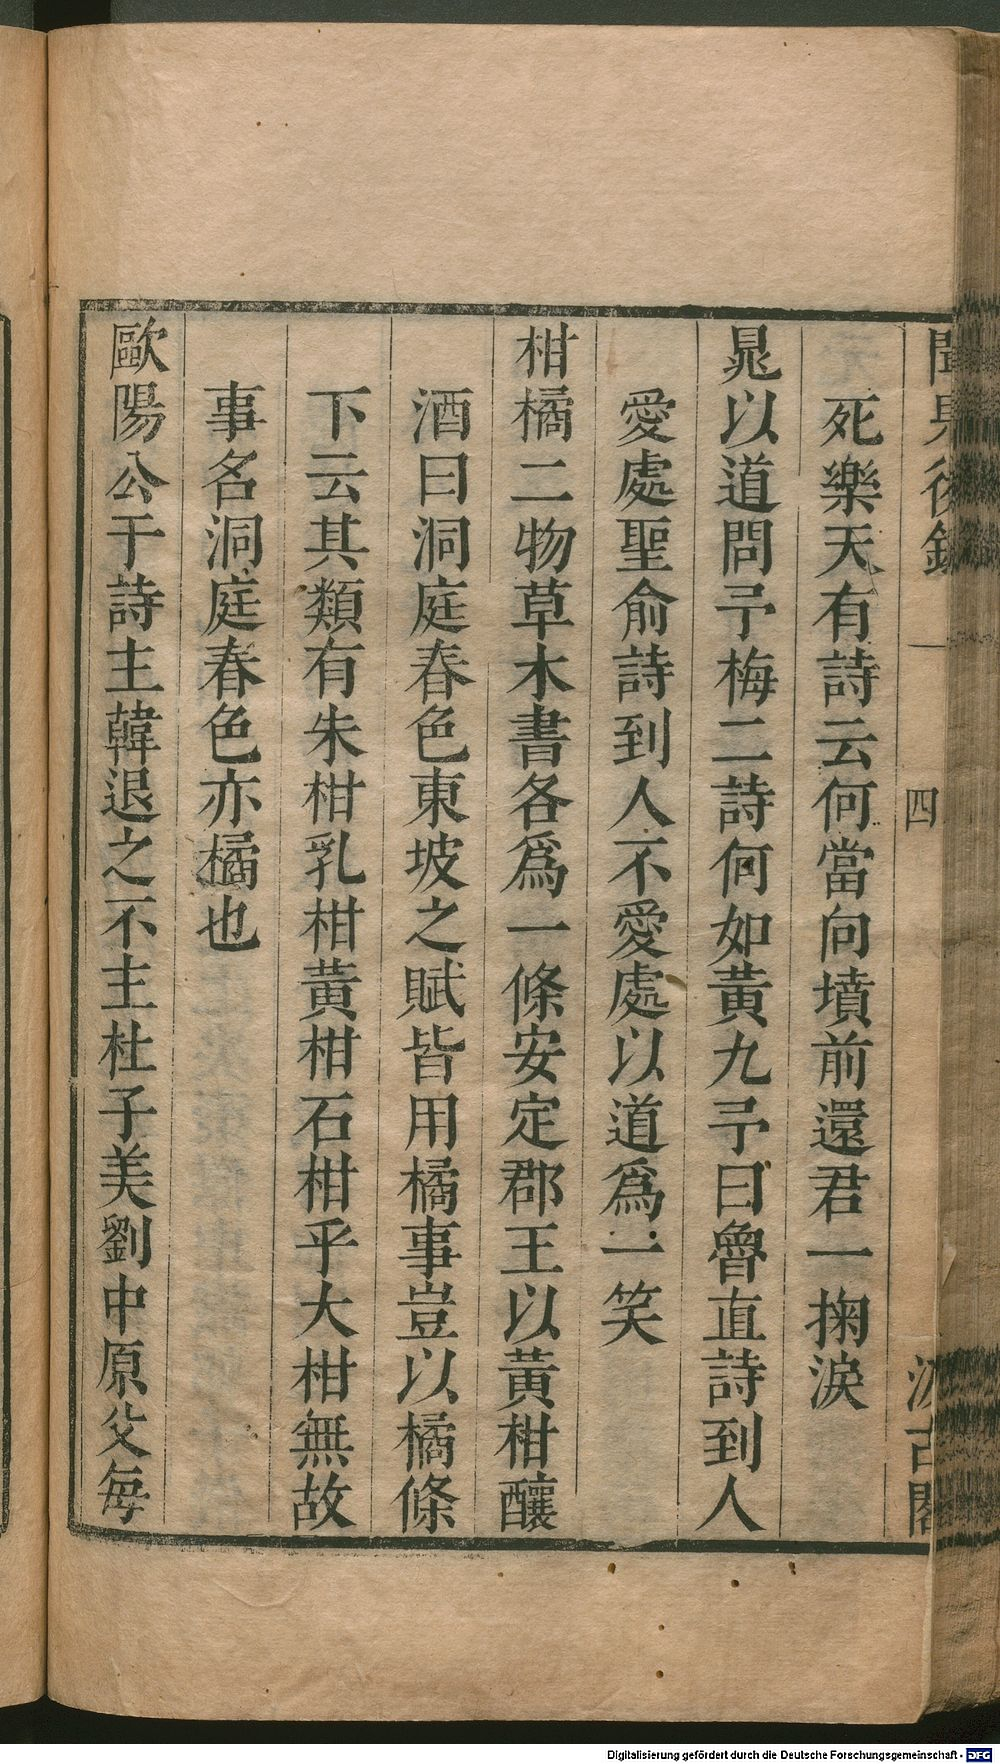 聞見後錄
四
汲古閣
死樂天有詩云何當向墳前還君一掬淚
晁以道問予梅二詩何如黃九予曰魯直詩到人
愛處聖俞詩到人不愛處以道爲一笑
柑橘二物草木書各爲一條安定郡王以黃柑釀
酒曰洞庭春色東坡之賦皆用橘事豈以橘條
下云其類有朱柑乳柑黃柑石柑乎大柑無故
事名洞庭春色亦橘也
歐陽公于詩主韓退之不主杜子美劉中原父每
Digitalisierung gefördert durch die Deutsche Forschungsgemeinschaft - DFG